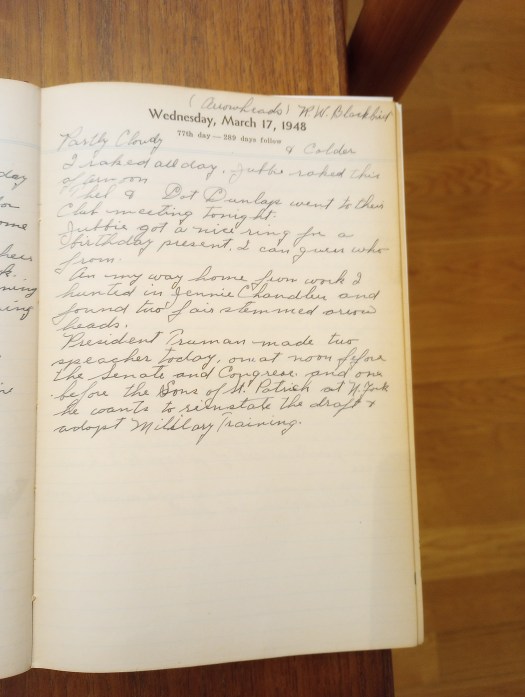 (Arrowheads) W.W. Blackbird
Wednesday, March 17, 1948
77th day—289 days follow
Partly Cloudy & Colder
I raked all day. Jubbie raked this
afternoon
Thel & Dot Dunlap went to their
Club meeting tonight.
Jubbie got a nice ring for a
birthday present. I can guess who
from.
On my way home from work I
hunted in Jennie Chandler and
found two fair stemmed arrow
heads.
President Truman made two
speaches today, one at noon before
the Senate and Congress and one
before the Sons of St. Patrick at N. York
he wants to reinstate the draft &
adopt Military Training.
day
for
ome
k.
ning
ing